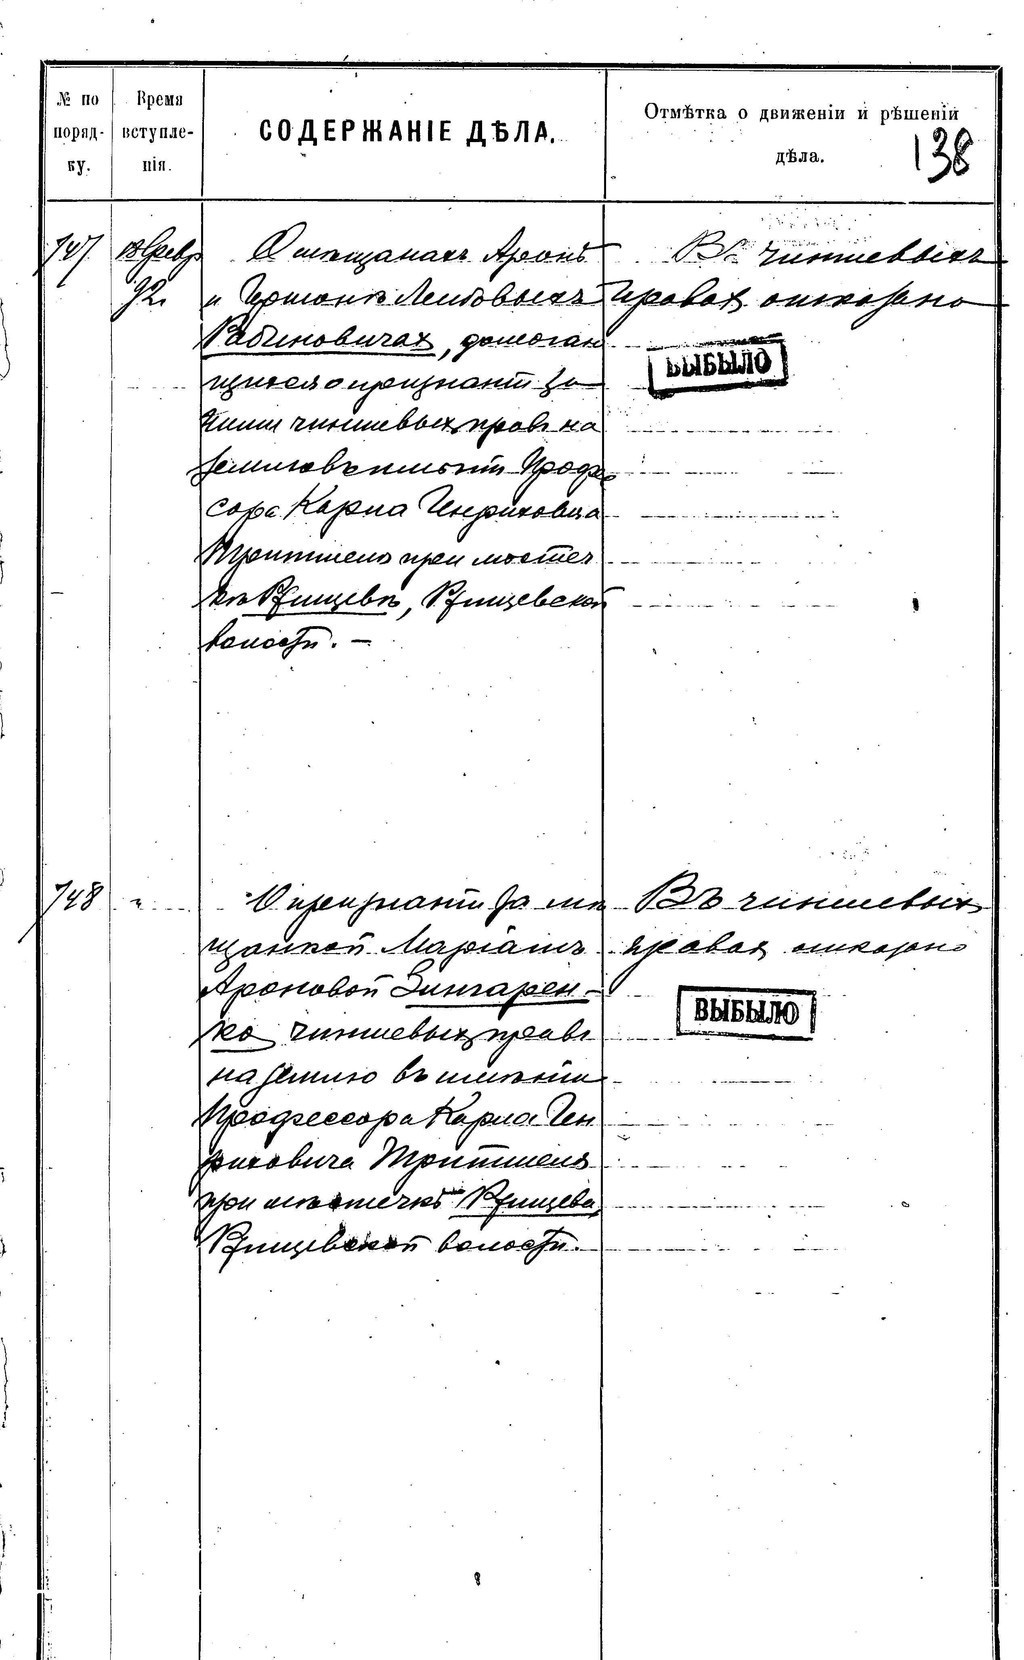 № по поряд-ку.
Время вступле-нія.
СОДЕРЖАНІЕ ДѢЛА.
Отмѣтка о движеніи и рѣшеніи дѣла.
138
747
18 Февр
92 г.
О мѣщанахъ Аронѣ
и Гершонѣ Лейбовыхъ
Рабиновичахъ, домоган
щихся о признаніи за
ними чиншевыхъ правъ на
землю въ имѣніи Профе
сора Карла Генриховича
Тритшель при мѣстеч
кѣ Ржищевѣ, Ржищевской
волости. —
Въ чиншевыхъ
правахъ отказано
ВЫБЫЛО
748
"
О признаніи за мѣ
щанкой Маріамъ
Ароновой Зингарен-
ко чиншевыхъ правъ
на землю въ имѣніи
Профессора Карла Ген
риховича Тритшель
при мѣстечкѣ Ржищевѣ,
Ржищевской волости.
Въ чиншевыхъ
правахъ отказано
ВЫБЫЛО